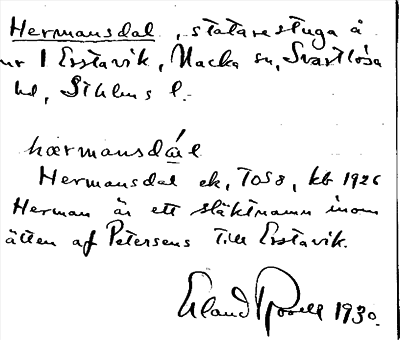 Hermansdal, statarestuga å
nr 1 Erstavik, Nacka sn, Svartlösa
hd, Sthlms l.
hærmansdál
Hermansdal ek, TO58, kb 1926
Herman är ett släktnamn inom
ätten af Petersens till Erstavik.
Erland Rosell 1930.